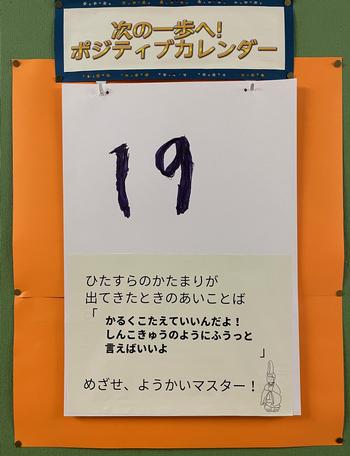 次の一歩へ!
ポジティブカレンダー
19
ひたすらのかたまりが
出てきたときのあいことば
「
かるくこたえていいんだよ！
しんこきゅうのようにふうっと
言えばいいよ
」
めざせ、ようかいマスター！